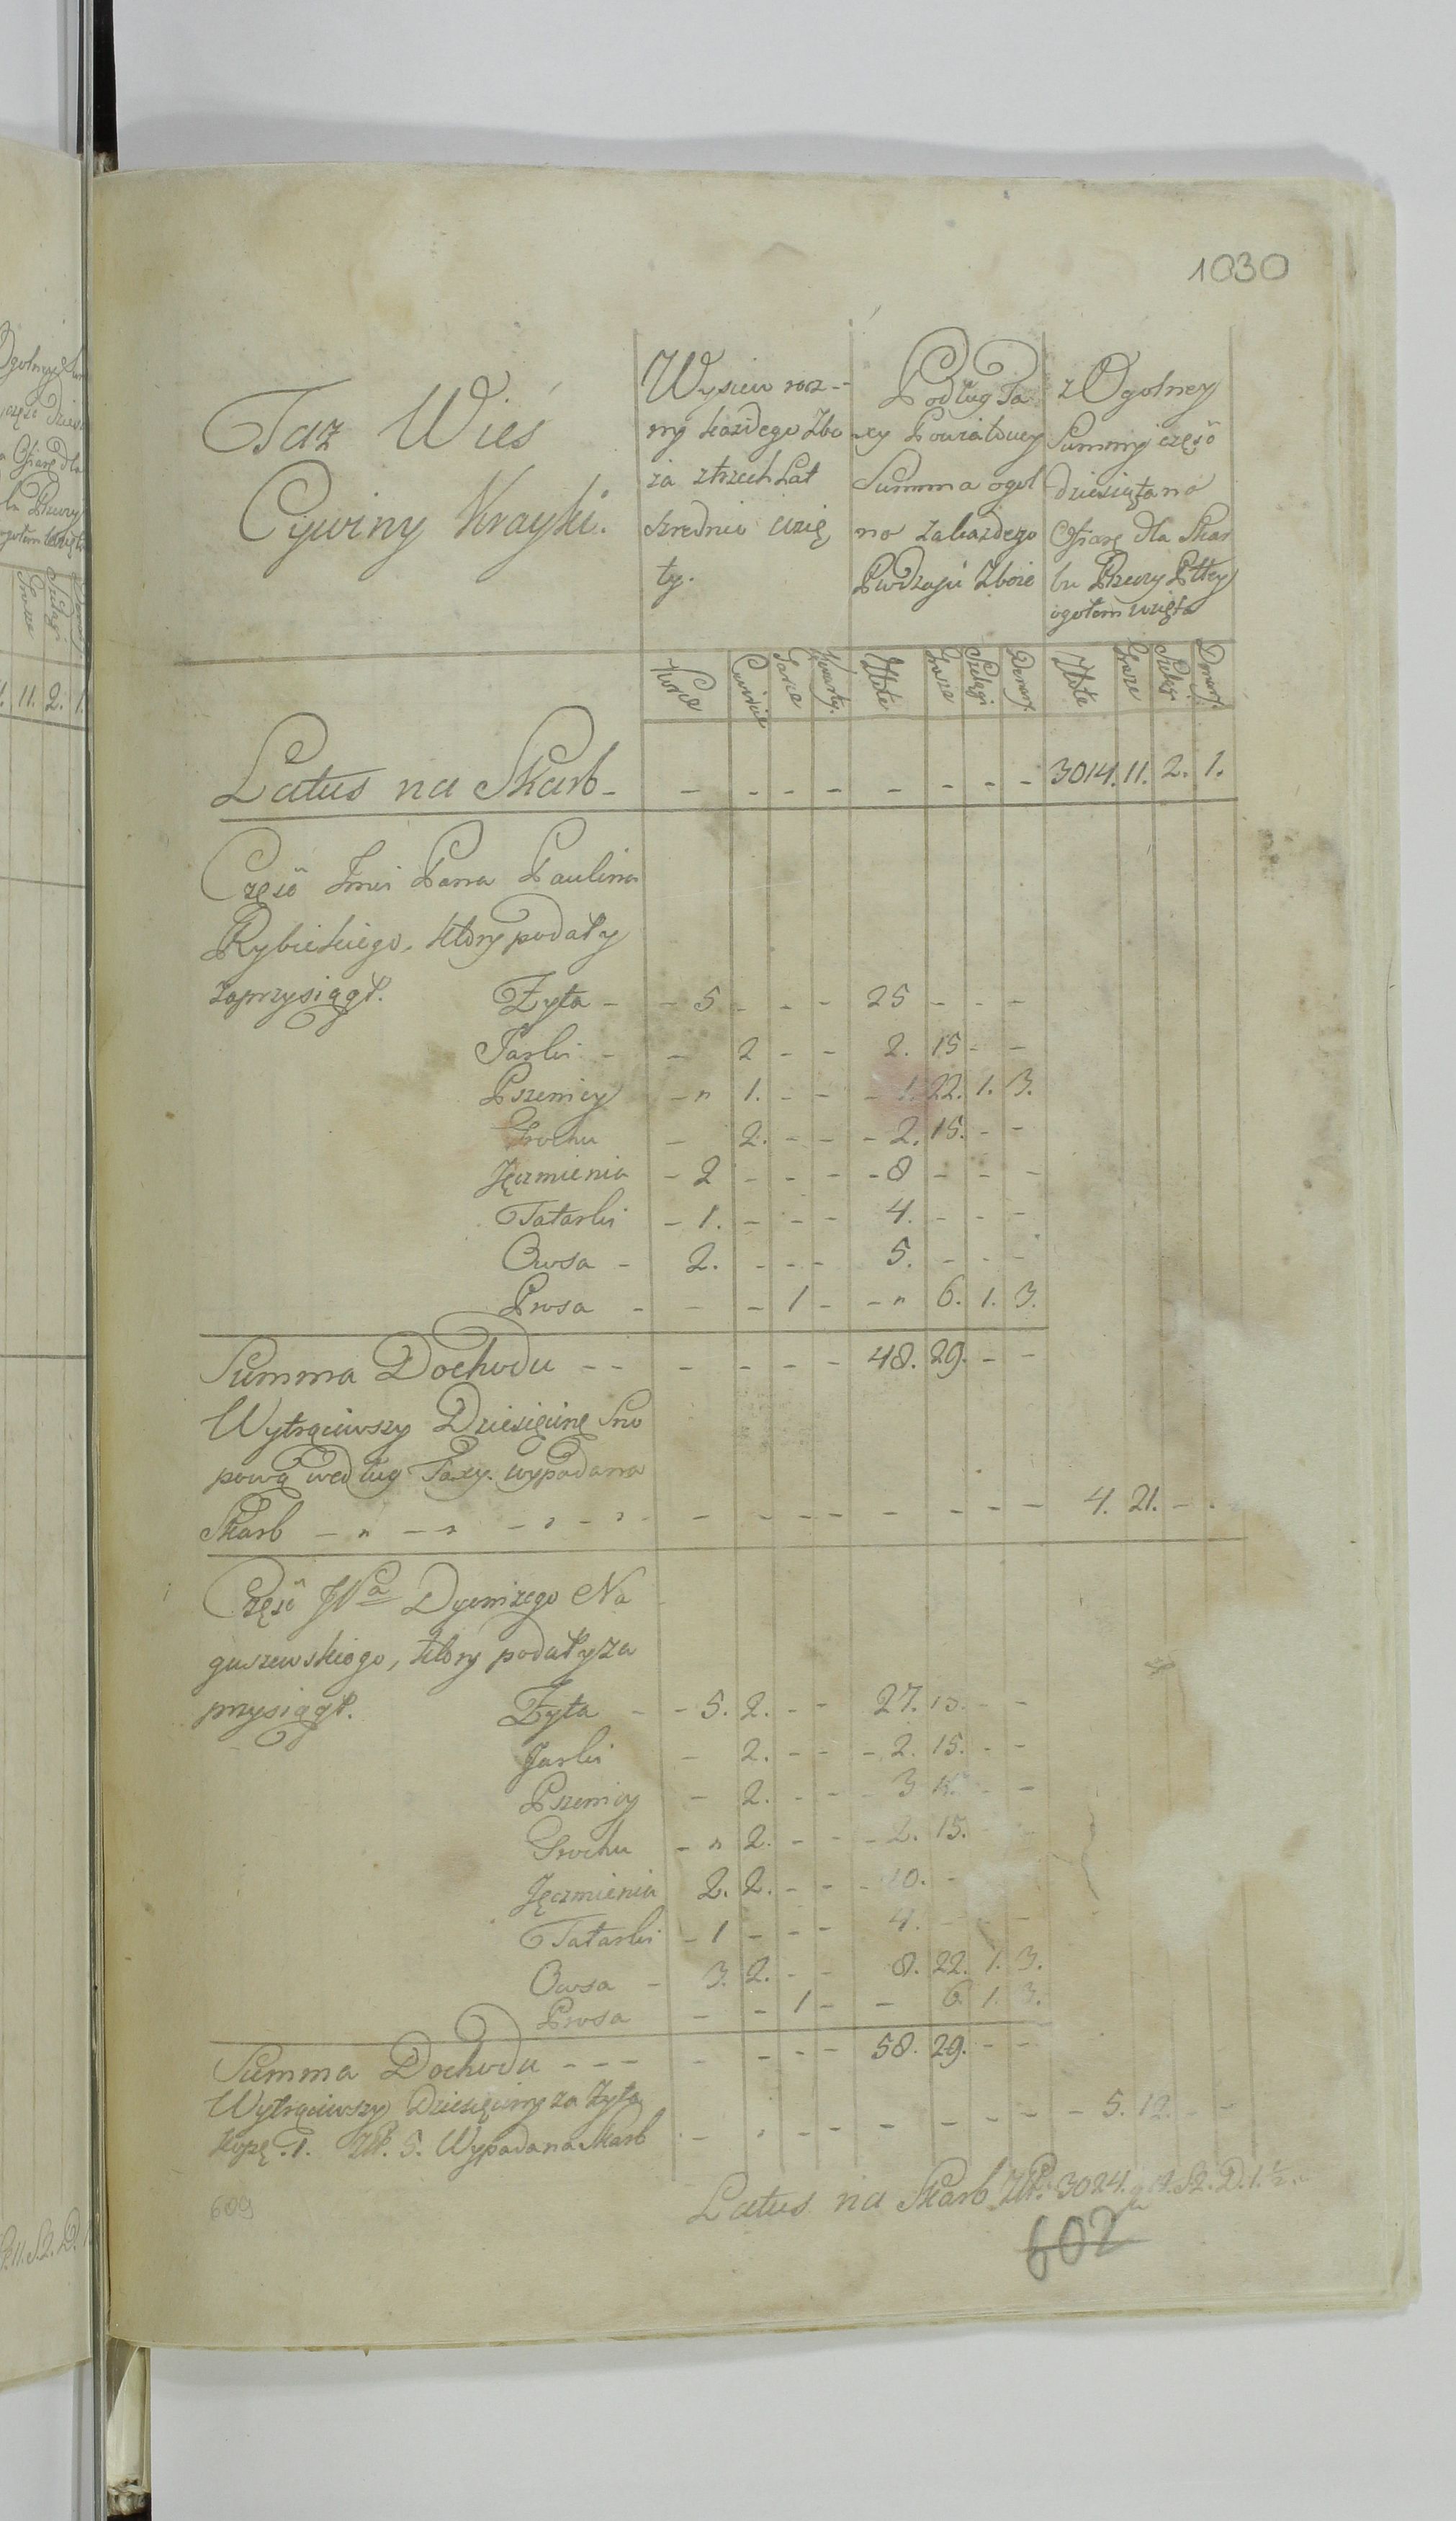 1030
Taz Wieś
Cywiny Krayki.
Wysiew rocz-
ny każdego Zbo
ża z trzech Lat
szrednio wzię
ty.
Podług Ta
xy Powiatowey
Summa ogol
no za każdego
Rodzaju Zboże
z Ogolney
Summy część
dziesiąta na
Ofiarę dla Skar
bu Rzeczy Pltey
ogołem wzięta
Korce Cwiercie Garce Kwarty. Złote Grosze Szelągi Denary. Złote Grosze Szelągi Denary.
Latus na Skarb - - - - - - - - - 3014. 11. 2. 1.
Część Jmci Pana Paulina
Rybickiego, ktory podał y
zaprzysiągł. Zyta - - 5 - - - 25 - - -
Jarki - - 2 - - 2. 15 - -
Pszenicy - " 1. - - - 1. 22. 1. 3.
Grochu - 2. - - - 2. 15. - -
Jęczmienia - 2 - - - - 8 - - -
Tatarki - 1. - - - 4. - - -
Owsa - 2. - - - 5. - - -
Prosa - - - 1 - - " 6. 1. 3.
Summa Dochodu - - - - - - 48. 29. - -
Wytrąciwszy Dziesięcinę Sno
pową według Taxy. wypada na
Skarb - " - " - " - " - - - - - - - - 4. 21. - .
Część JPa Dyonizego Na
guszewskiego, ktory podał y za
przysiągł. Zyta - - 5. 2. - - 27. 15. - -
Jarki - 2. - - - 2. 15. - -
Pszenicy - 2. - - - 3 - -
Grochu - " 2. - - - 2. 15.
Jęczmienia 2. 2. - - - 10. -
Tatarki - 1 - - - 4. - - -
Owsa - 3. 2. - - 8. 22. 1. 3.
Prosa - - 1 - - 6. 1. 3.
Summa Dochodu - - - - - - - 58. 29. - -
Wytrąciwszy Dziesięciny za Zyta
Kopę. 1. Złt. 5. Wypada na Skarb - - - - - - - - - 5. 12. - -
Latus na Skarb Złt. 3024. S2. D. 1.
609
602
11. 2. 1.